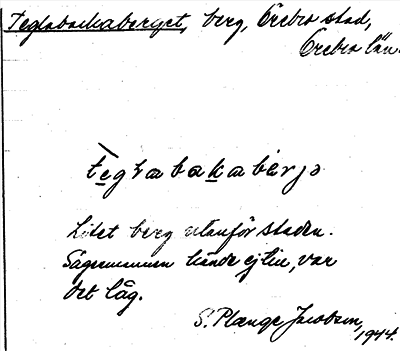 Teglabackaberget, berg, Örebro stad,
Örebro län.
te̲grabak̲abærjə
Litet berg utanför staden.
Sagesmannen kände ej till, var
det låg.
S. Plænge Jacobson,
1944.